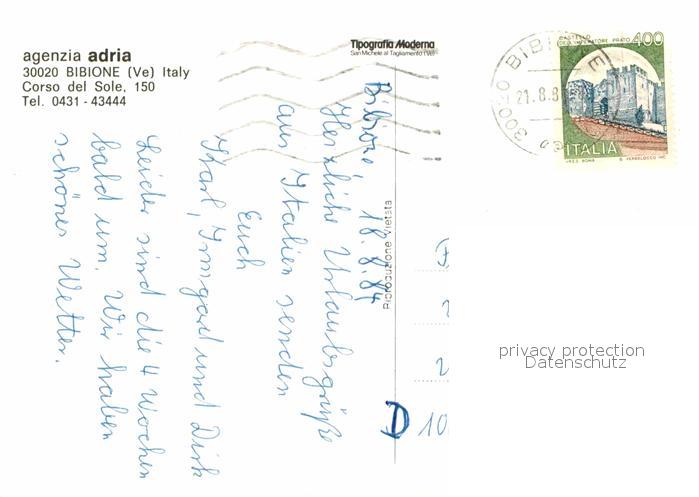 agenzia adria
30020 BIBIONE (Ve) Italy
Corso del Sole, 150
Tel. 0431 - 43444
Tipografia Moderna
San Michele al Tagliamento (Ve)
Riproduzione Vietata
Bibione, 18.8.84
Herzliche Urlaubsgrüße
aus Italien senden
Euch
Karl, Irmgard und Dirk
Leider sind die 4 Wochen
bald um. Wir haben
schönes Wetter.
CASTELLO
DELL'IMPERATORE PRATO 400
ITALIA
I.P.Z.S. ROMA
30020 BIBIONE
21.8.8
D 10
privacy protection
Datenschutz